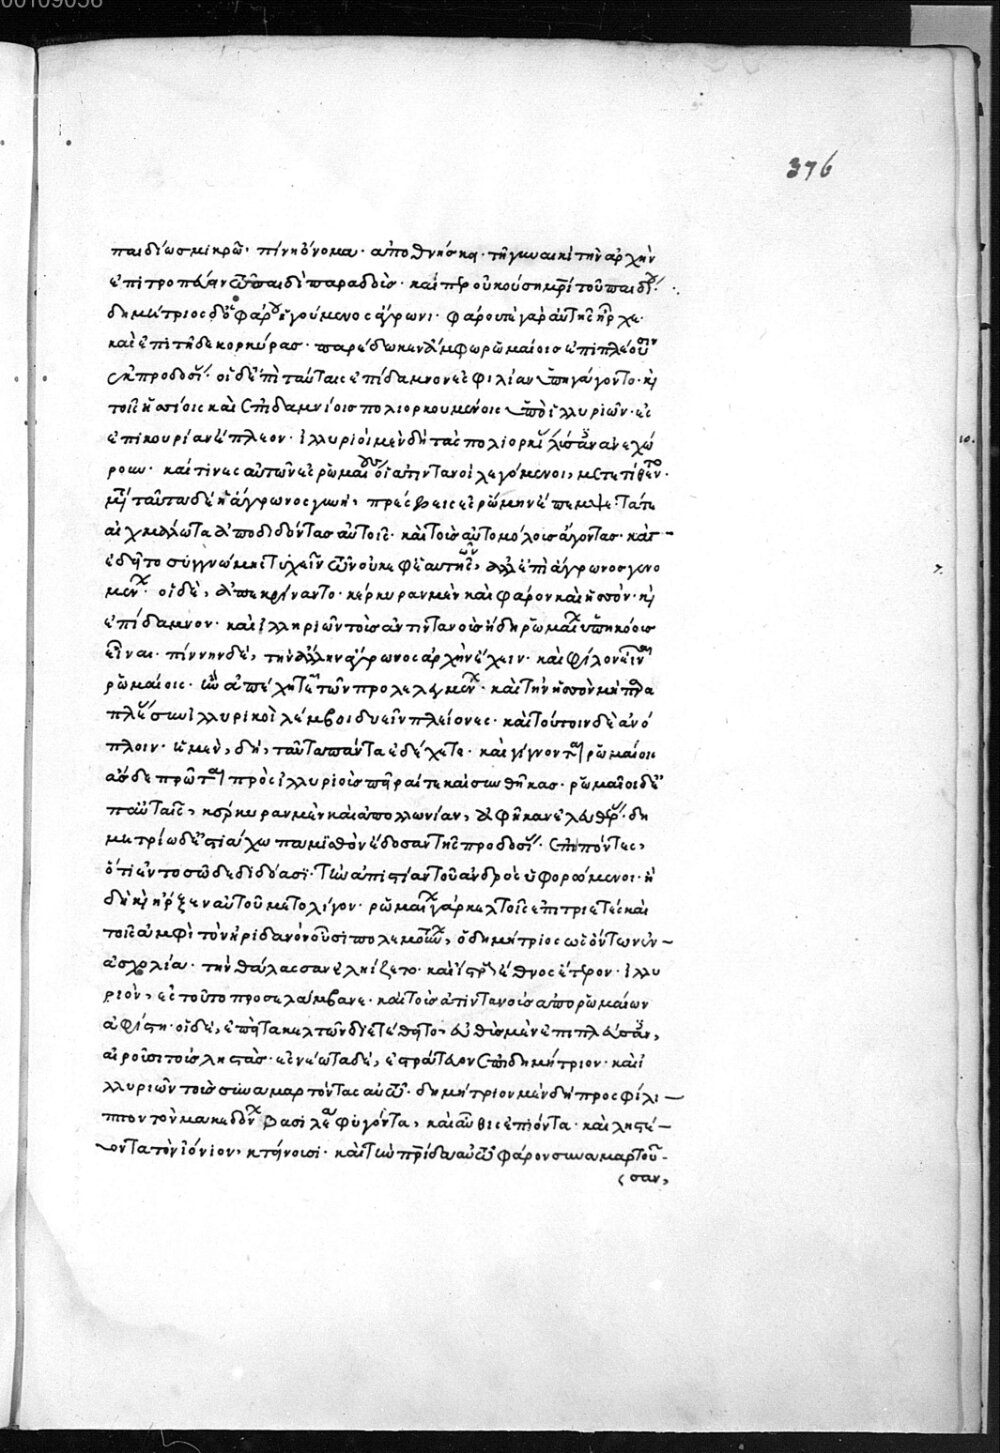 00109056
376
παιδίω σμικρῶ· πίνη ὄνομα· ἀποθνήσκει· τῆ γυναικὶ τὴν ἀρχὴν
ἐπιτροπεύειν τῶ παιδὶ παραδοὺς· καίπερ οὐκ οὔση μητρὶ τοῦ παιδίου·
δημήτριος δ' ὁ φάρου ἡγούμενος ἄγρωνι· φάρου τε γὰρ αὐτῆς ἦρχε·
καὶ ἐπὶ τῆδε κορκύρας· παρέδωκεν ἄμφω ῥωμαίοις ἐπιπλέουσιν
ἐκ προδοσίας· οἱ δ' ἐπὶ ταύταις ἐπίδαμνον ἐς φιλίαν ὑπηγάγοντο· καὶ
τοῖς ἰσσίοις καὶ ἐπιδαμνίοις πολιορκουμένοις ὑπὸ ἰλλυριῶν· ἐς
ἐπικουρίαν ἔπλεον· ἰλλυριοὶ μὲν δὴ τὰς πολιορκίας λύσαντες ἀνεχώ
ρουν· καί τινες αὐτῶν ἐς ῥωμαίους οἱ ἀτιντανοὶ λεγόμενοι, μετετίθεντο·
μετὰ ταῦτα δὲ ἡ ἄγρωνος γυνὴ, πρέσβεις ἐς ῥώμην ἔπεμψε· τά τε
αἰχμάλωτα ἀποδιδόντας αὐτοῖς· καὶ τοὺς αὐτομόλους ἄγοντας· καὶ
ἐδεῖτο συγγνώμης τυχεῖν τῶν οὐκ ἐφ' ἑαυτῆς, ἀλλ' ἐπὶ ἄγρωνος γενο
μένων· οἱ δὲ, ἀπεκρίναντο· κέρκυραν μὲν καὶ φάρον καὶ ἴσσον· καὶ
ἐπίδαμνον· καὶ ἰλληριῶν τοὺς ἀντιντανοὺς ἤδη ῥωμαίων ὑπηκόους
εἶναι· πίννην δὲ, τὴν ἄλλην ἄγρωνος ἀρχὴν ἔχειν· καὶ φίλον εἶναι
ῥωμαίοις· ἢν ἀπέχηταί τε τῶν προλελεγμένων· καὶ τὴν ἴσσον μὴ πλα
πλέωσιν ἰλλυρικοὶ λέμβοι δυεῖν πλείονες· καὶ τούτοιν δὲ ἀνό
πλοιν· ἡ μὲν, δὴ, ταῦτα πάντα ἐδέχετο· καὶ γίγνονται ῥωμαίοις
αἵδε πρῶται πρὸς ἰλλυριοὺς πεῖραί τε καὶ συνθῆκαι· ῥωμαῖοι δὲ
ἐπ' αὐταῖς, κέρκυραν μὲν καὶ ἀπολλωνίαν, ἀφῆκαν ἐλευθέρας· δη
μητρίω δ' ἔστιν ἃ χωρία μισθὸν ἔδοσαν τῆς προδοσίας· ἐπειπόντες,
ὅτι ἐν τοσῶδε διδόασι· τὴν ἀπιστίαν τοῦ ἀνδρὸς ὑφορώμενοι· ἣ
δὴ καὶ ἦρξεν αὐτοῦ μετ' ὀλίγον· ῥωμαίων γὰρ κελτοῖς ἐπὶ τριετὲς καὶ
τοῖς ἀμφὶ τὸν ἠριδανὸν οὖσι πολεμούντων, ὁ δημήτριος ὡς ὄντων ἐν
ἀσχολία· τὴν θάλασσαν ἐληίζετο· καὶ ἴστρους ἔθνος ἕτερον· ἰλλυ
ριὸν, ἐς τοῦτο προσελάμβανε· καὶ τοὺς ἀτιντανοὺς ἀπὸ ῥωμαίων
ἀφίστη· οἱ δὲ, ἐπεὶ τὰ κελτῶν διετέθειτο, εὐθὺς μὲν ἐπιπλεύσαντες,
αἱροῦσι τοὺς ληστὰς· ἐς νέωτα δὲ, ἐστράτευον ἐπὶ δημήτριον· καὶ ἰ
λλυριῶν τοὺς συναμαρτόντας αὐτῶ· δημήτριον μὲν δὴ πρὸς φίλι
ππον τὸν μακεδόνων βασιλέα φυγόντα, καὶ αὖθις ἐπιόντα· καὶ ληστεύ
οντα τὸν ἰόνιον, κτείνουσι· καὶ τὴν πατρίδα αὐτῶ φάρον συναμαρτοῦ
σαν,